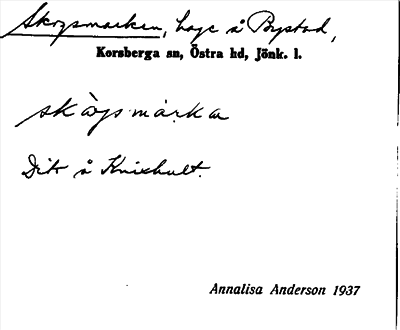 Skogsmarken, hage å Bystad,
Korsberga sn, Östra hd, Jönk. l.
skògsmàrka
Dito å Knixhult.
Annalisa Anderson 1937